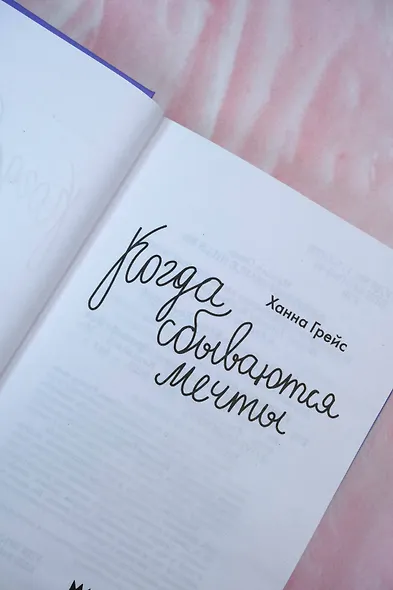 Ханна Грейс
Когда
сбываются
мечты